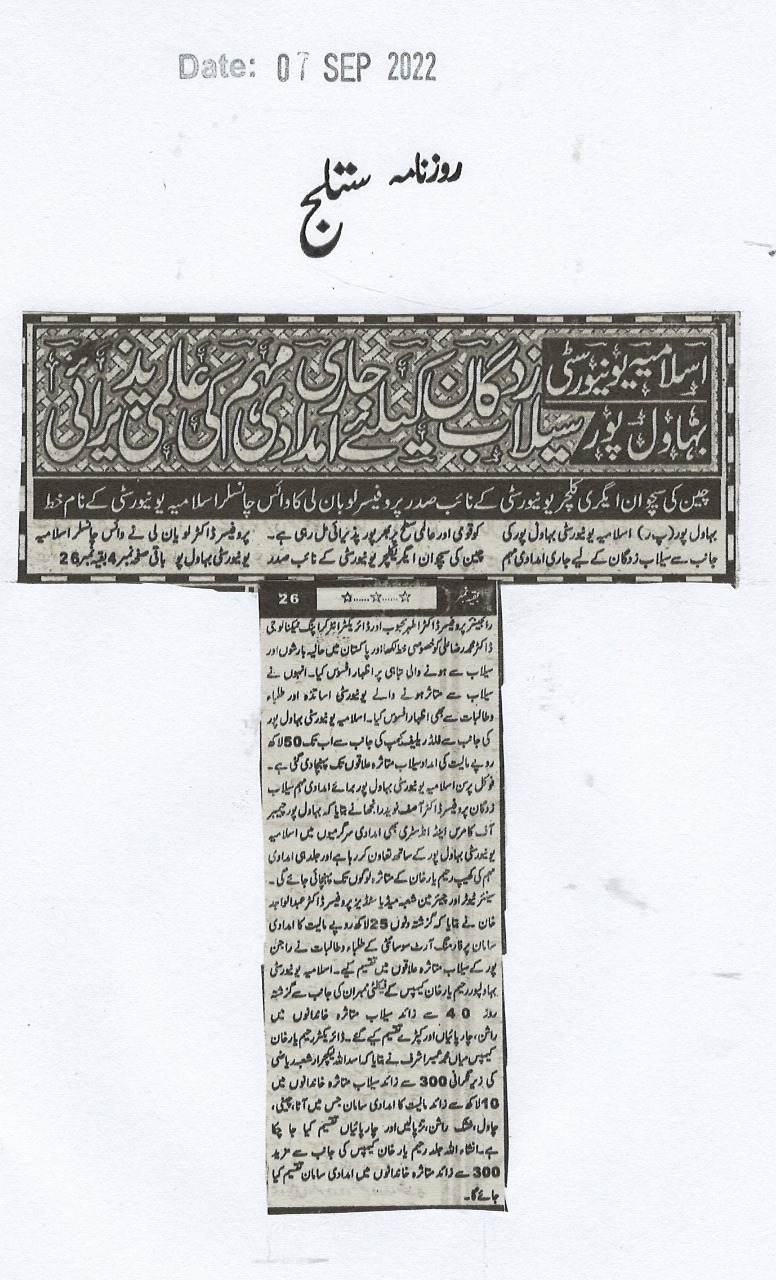 Date: 07 SEP 2022
روزنامہ ستلج
اسلامیہ یونیورسٹی
بہاول پور
سیلاب زدگان کیلئے جاری امدادی مہم کی عالمی پذیرائی
چین کی سچوان ایگری کلچر یونیورسٹی کے نائب صدر پروفیسر لوبان لی کا وائس چانسلر اسلامیہ یونیورسٹی کے نام خط
بہاول پور (پ ر) اسلامیہ یونیورسٹی بہاول پور کی
جانب سے سیلاب زدگان کے لیے جاری امدادی مہم
کو قومی اور عالمی سطح پر بھرپور پذیرائی مل رہی ہے۔
چین کی سچوان ایگریکلچر یونیورسٹی کے نائب صدر
پروفیسر ڈاکٹر لویان لی نے وائس چانسلر اسلامیہ
یونیورسٹی بہاول پو باقی صفحہ نمبر 4 بقیہ نمبر 26
بقیہ نمبر ☆......☆......☆ 26
را نجینئر پروفیسر ڈاکٹر اطہر محبوب اور ڈائریکٹر انٹر کراپنگ ٹیکنالوجی
ڈاکٹر محمد رضا علی کو خصوصی خط لکھا اور پاکستان میں حالیہ بارشوں اور
سیلاب سے ہونے والی تباہی پر اظہار افسوس کیا۔ انہوں نے
سیلاب سے متاثر ہونے والے یونیورسٹی اساتذہ اور طلباء
وطالبات سے بھی اظہار افسوس کیا۔ اسلامیہ یونیورسٹی بہاول پور
کی جانب سے فلڈ ریلیف کیمپ کی جانب سے اب تک 50 لاکھ
روپے مالیت کی امداد سیلاب متاثرہ علاقوں تک پہنچا دی گئی ہے۔
فوکل پرسن اسلامیہ یونیورسٹی بہاول پور برائے امدادی مہم سیلاب
زدگان پروفیسر ڈاکٹر آصف نوید رانجھا نے بتایا کہ بہاول پور چیمبر
آف کامرس اینڈ انڈسٹری بھی امدادی سرگرمیوں میں اسلامیہ
یونیورسٹی بہاول پور کے ساتھ تعاون کر رہا ہے اور جلد ہی امدادی
مہم کی کھیپ رحیم یار خان کے متاثرہ لوگوں تک پہنچائی جائے گی۔
سینئر ٹیوٹر اور چیئرمین شعبہ میڈیا سٹڈیز پروفیسر ڈاکٹر عبدالواجد
خان نے بتایا کہ گزشتہ دنوں 25 لاکھ روپے مالیت کا امدادی
سامان پرفارمنگ آرٹ سوسائٹی کے طلباء وطالبات نے راجن
پور کے سیلاب متاثرہ علاقوں میں تقسیم کیے۔ اسلامیہ یونیورسٹی
بہاولپور رحیم یار خان کیمپس کے فیکلٹی ممبران کی جانب سے گزشتہ
روز 40 سے زائد سیلاب متاثرہ خاندانوں میں
راشن، چارپائیاں اور کپڑے تقسیم کیے گئے۔ ڈائریکٹر رحیم یار خان
کیمپس میاں محمد عمیر اشرف نے بتایا کہ اسد اللہ لیکچرار شعبہ ریاضی
کی زیر نگرانی 300 سے زائد سیلاب متاثرہ خاندانوں میں
10 لاکھ سے زائد مالیت کا امدادی سامان جس میں آٹا، چینی،
چاول، خشک راشن، ترپالیں اور چارپائیاں تقسیم کیا جا چکا
ہے۔ انشاء اللہ جلد رحیم یار خان کیمپس کی جانب سے مزید
300 سے زائد متاثرہ خاندانوں میں امدادی سامان تقسیم کیا
جائے گا۔